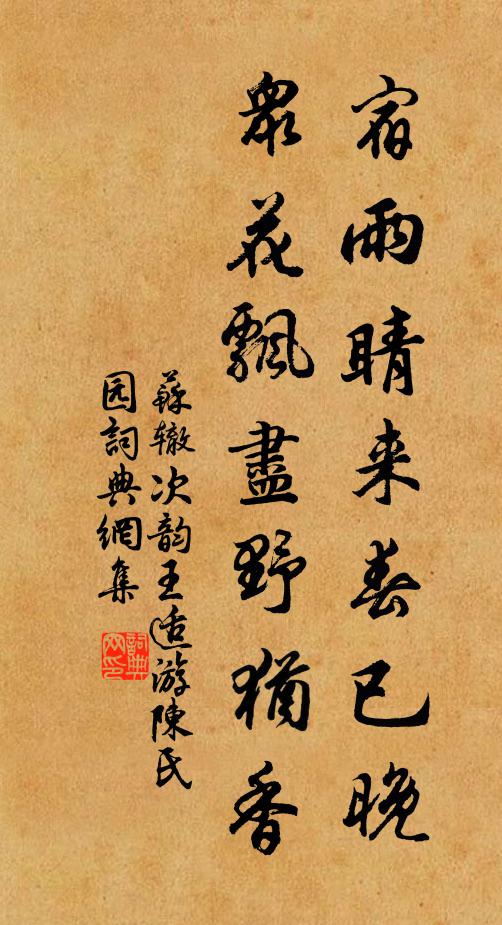 宿雨晴来春已晚
眾花飄盡野猶香
蘇辙次韵王适游陳氏
园詞典網集
詞典网印